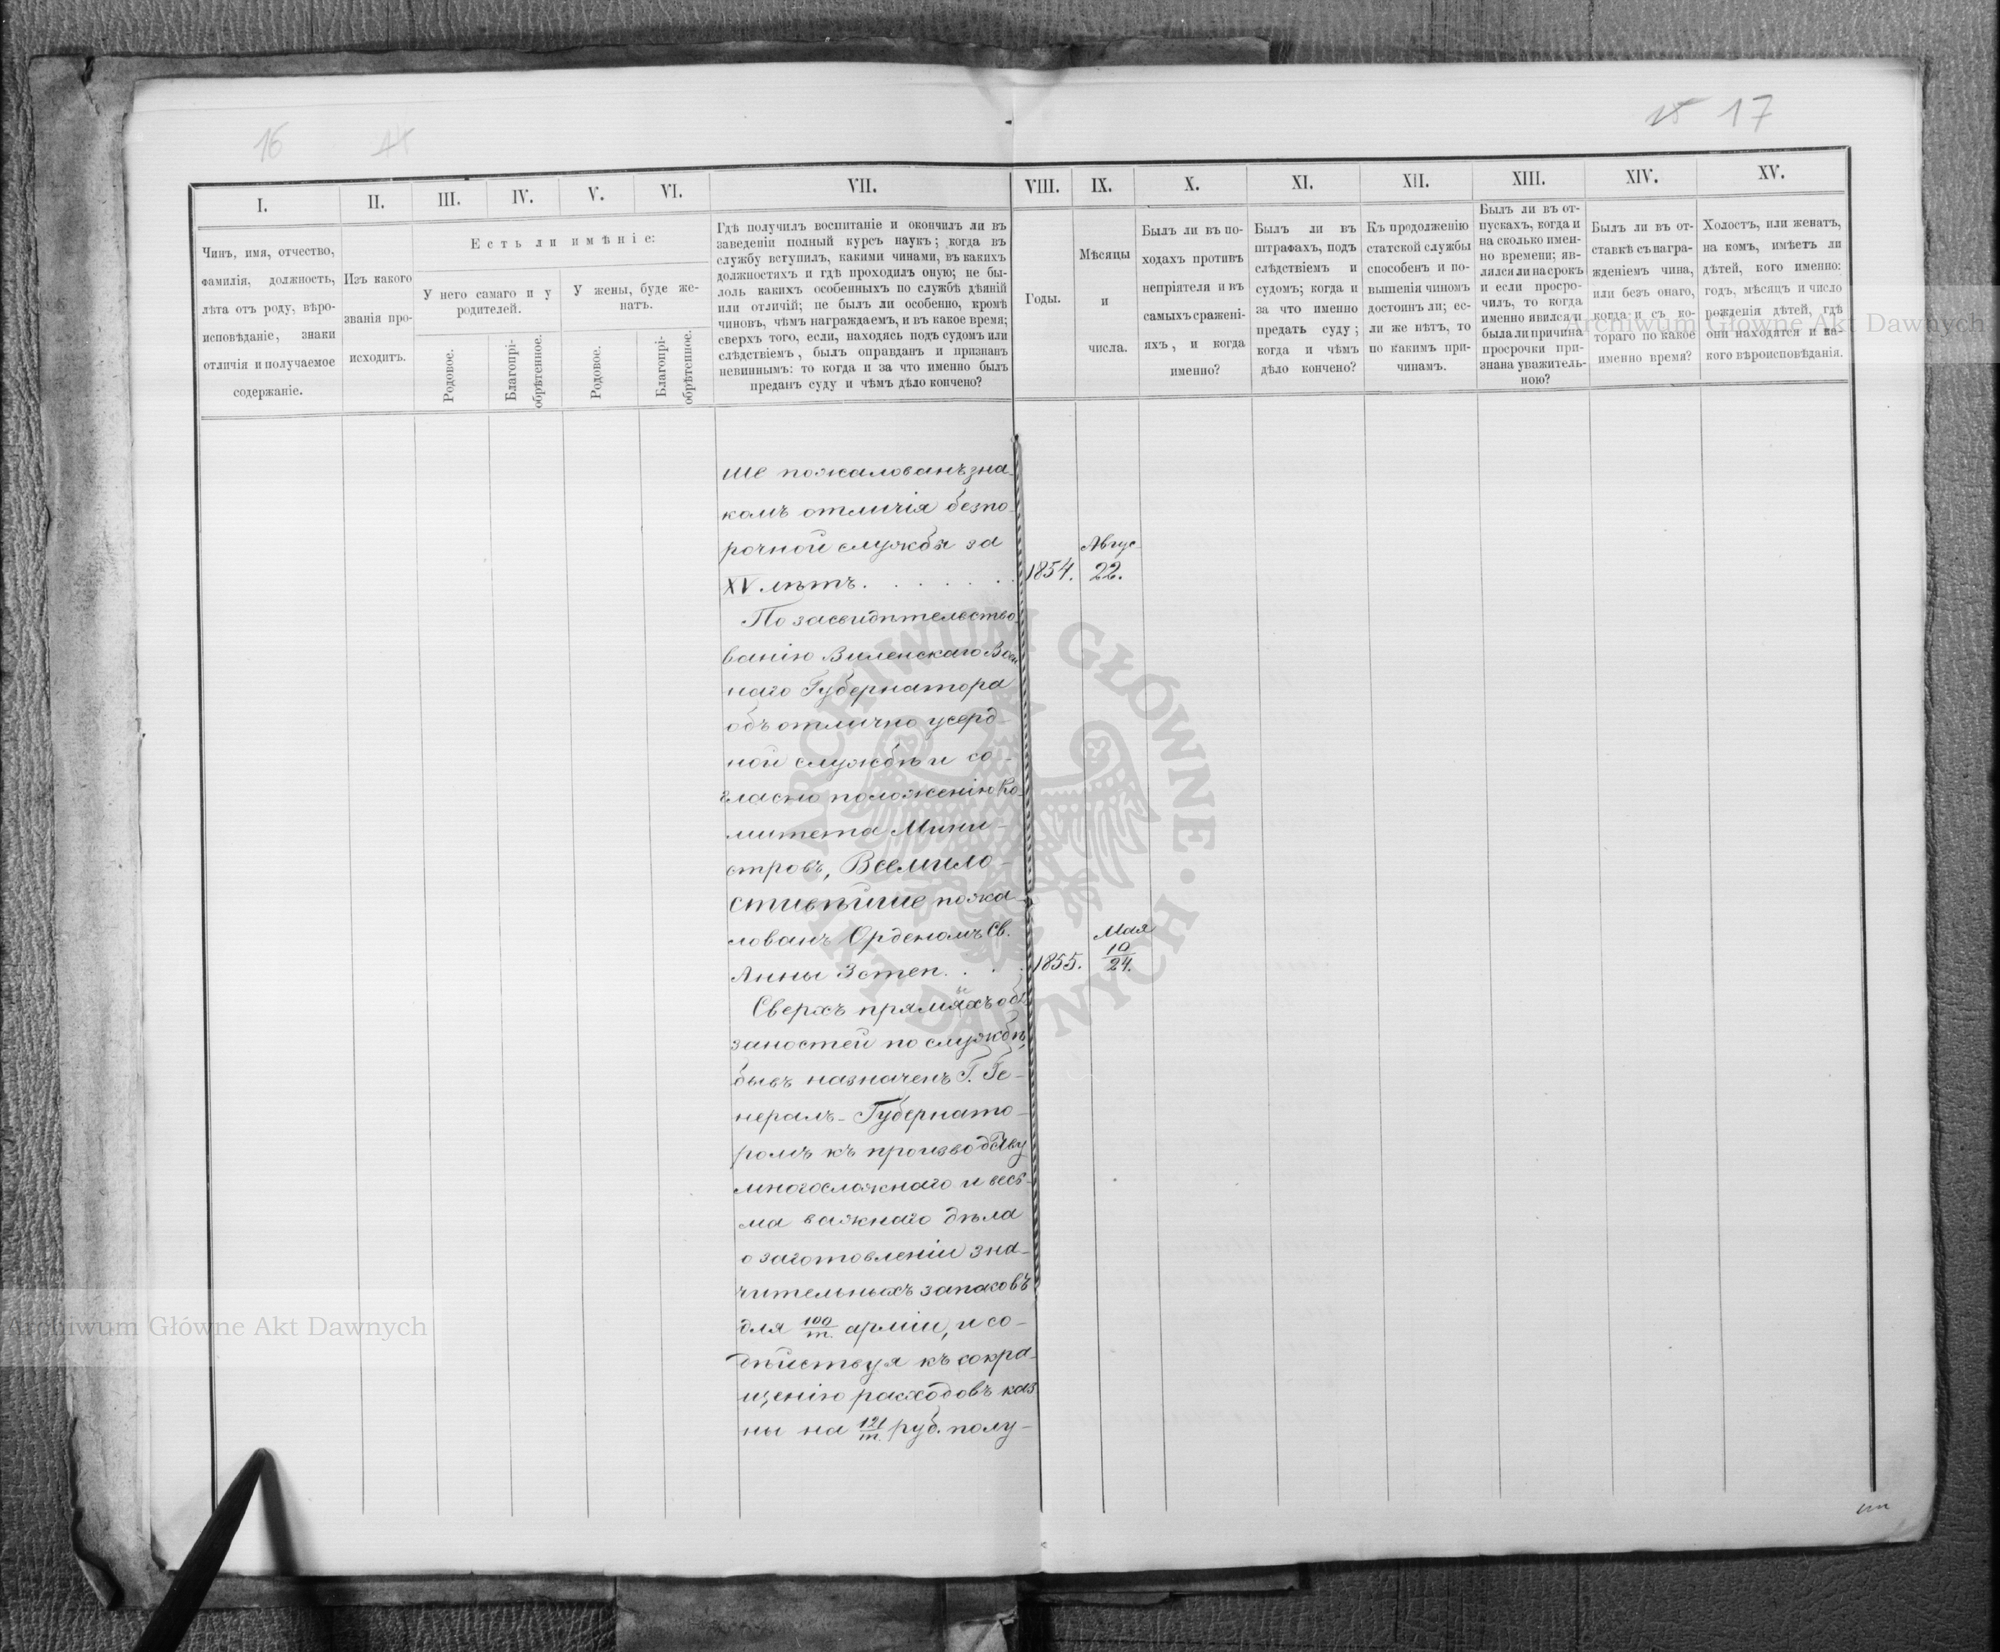 16
15 17
I.
II.
III.
IV.
V.
VI.
VII.
VIII.
IX.
X.
XI.
XII.
XIII.
XIV.
XV.
Чинъ, имя, отчество,
фамилія, должность,
лѣта отъ роду, вѣро-
исповѣданіе, знаки
отличія и получаемое
содержаніе.
Изъ какого
званія про-
исходитъ.
Есть ли имѣніе:
У него самаго и у
родителей.
У жены, буде же-
натъ.
Родовое.
Благопрі-
обрѣтенное.
Родовое.
Благопрі-
обрѣтенное.
Гдѣ получилъ воспитаніе и окончилъ ли въ
заведеніи полный курсъ наукъ; когда въ
службу вступилъ, какими чинами, въ какихъ
должностяхъ и гдѣ проходилъ оную; не бы-
лоль какихъ особенныхъ по службѣ дѣяній
или отличій; не былъ ли особенно, кромѣ
чиновъ, чѣмъ награждаемъ, и въ какое время;
сверхъ того, если, находясь подъ судомъ или
слѣдствіемъ, былъ оправданъ и признанъ
невиннымъ: то когда и за что именно былъ
преданъ суду и чѣмъ дѣло кончено?
Годы.
Мѣсяцы
и
числа.
Былъ ли въ по-
ходахъ противъ
непріятеля и въ
самыхъ сражені-
яхъ, и когда
именно?
Былъ ли въ
штрафахъ, подъ
слѣдствіемъ и
судомъ; когда и
за что именно
преданъ суду;
когда и чѣмъ
дѣло кончено?
Къ продолженію
статской службы
способенъ и по-
вышенія чиномъ
достоинъ ли; ес-
ли же нѣтъ, то
по какимъ при-
чинамъ.
Былъ ли въ от-
пускахъ, когда и
на сколько имен-
но времени; яв-
лялся ли на срокъ
и если просро-
чилъ, то когда
именно явился и
была ли причина
просрочки при-
знана уважитель-
ною?
Былъ ли въ от-
ставкѣ съ награ-
жденіемъ чина,
или безъ онаго,
когда и съ ко-
тораго по какое
именно время?
Холостъ, или женатъ,
на комъ, имѣетъ ли
дѣтей, кого именно:
годъ, мѣсяцъ и число
рожденія дѣтей, гдѣ
они находятся и ка-
кого вѣроисповѣданія.
ше пожалованъ зна-
комъ отличія безпо-
рочной службы за
XV лѣтъ. . . . . . .
1854.
Авгус.
22.
По засвидѣтельство-
ванію Виленскаго Воен
наго Губернатора
объ отлично усерд-
ной службѣ и со-
гласно положенію Ко-
митета Мини-
стровъ, Всемило-
стивѣйше пожа-
лованъ Орденомъ Св.
Анны 3 степ. . . .
1855.
Мая
10
24.
Сверхъ прямыхъ обя
заностей по службѣ,
бывъ назначенъ Г. Ге-
нералъ-Губернато-
ромъ къ производству
многосложнаго и весь-
ма важнаго дѣла
о заготовленіи зна-
чительныхъ запасовъ
для 100/т. арміи, и со-
дѣйствуя къ сокра-
щенію расходовъ каз
ны на 121/т. руб. полу-
Archiwum Główne Akt Dawnych
Archiwum Główne Akt Dawnych
ARCHIWUM GŁÓWNE · AKT DAWNYCH ·